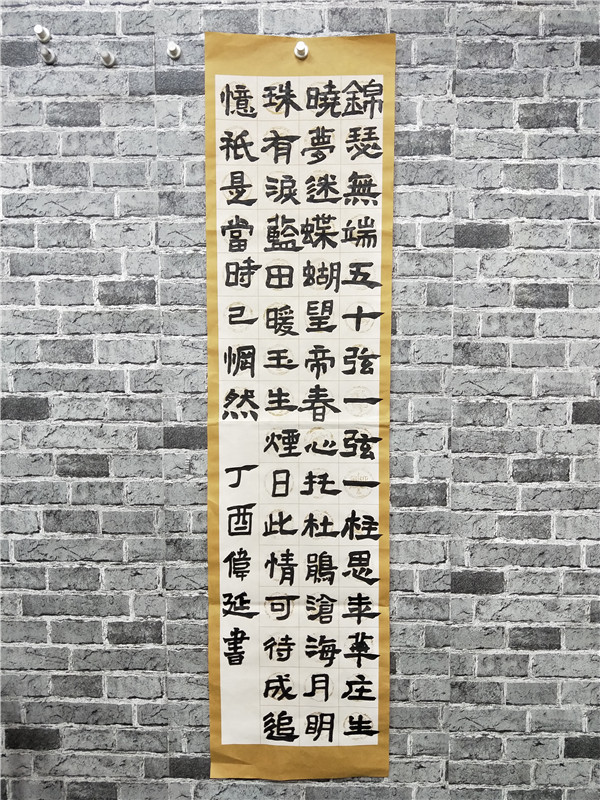 錦瑟無端五十弦一弦一柱思年華庄生
曉夢迷蝶蝴望帝春心托杜鵑滄海月明
珠有淚藍田暖玉生煙日此情可待成追
憶祇是當時已惘然 丁酉偉延書